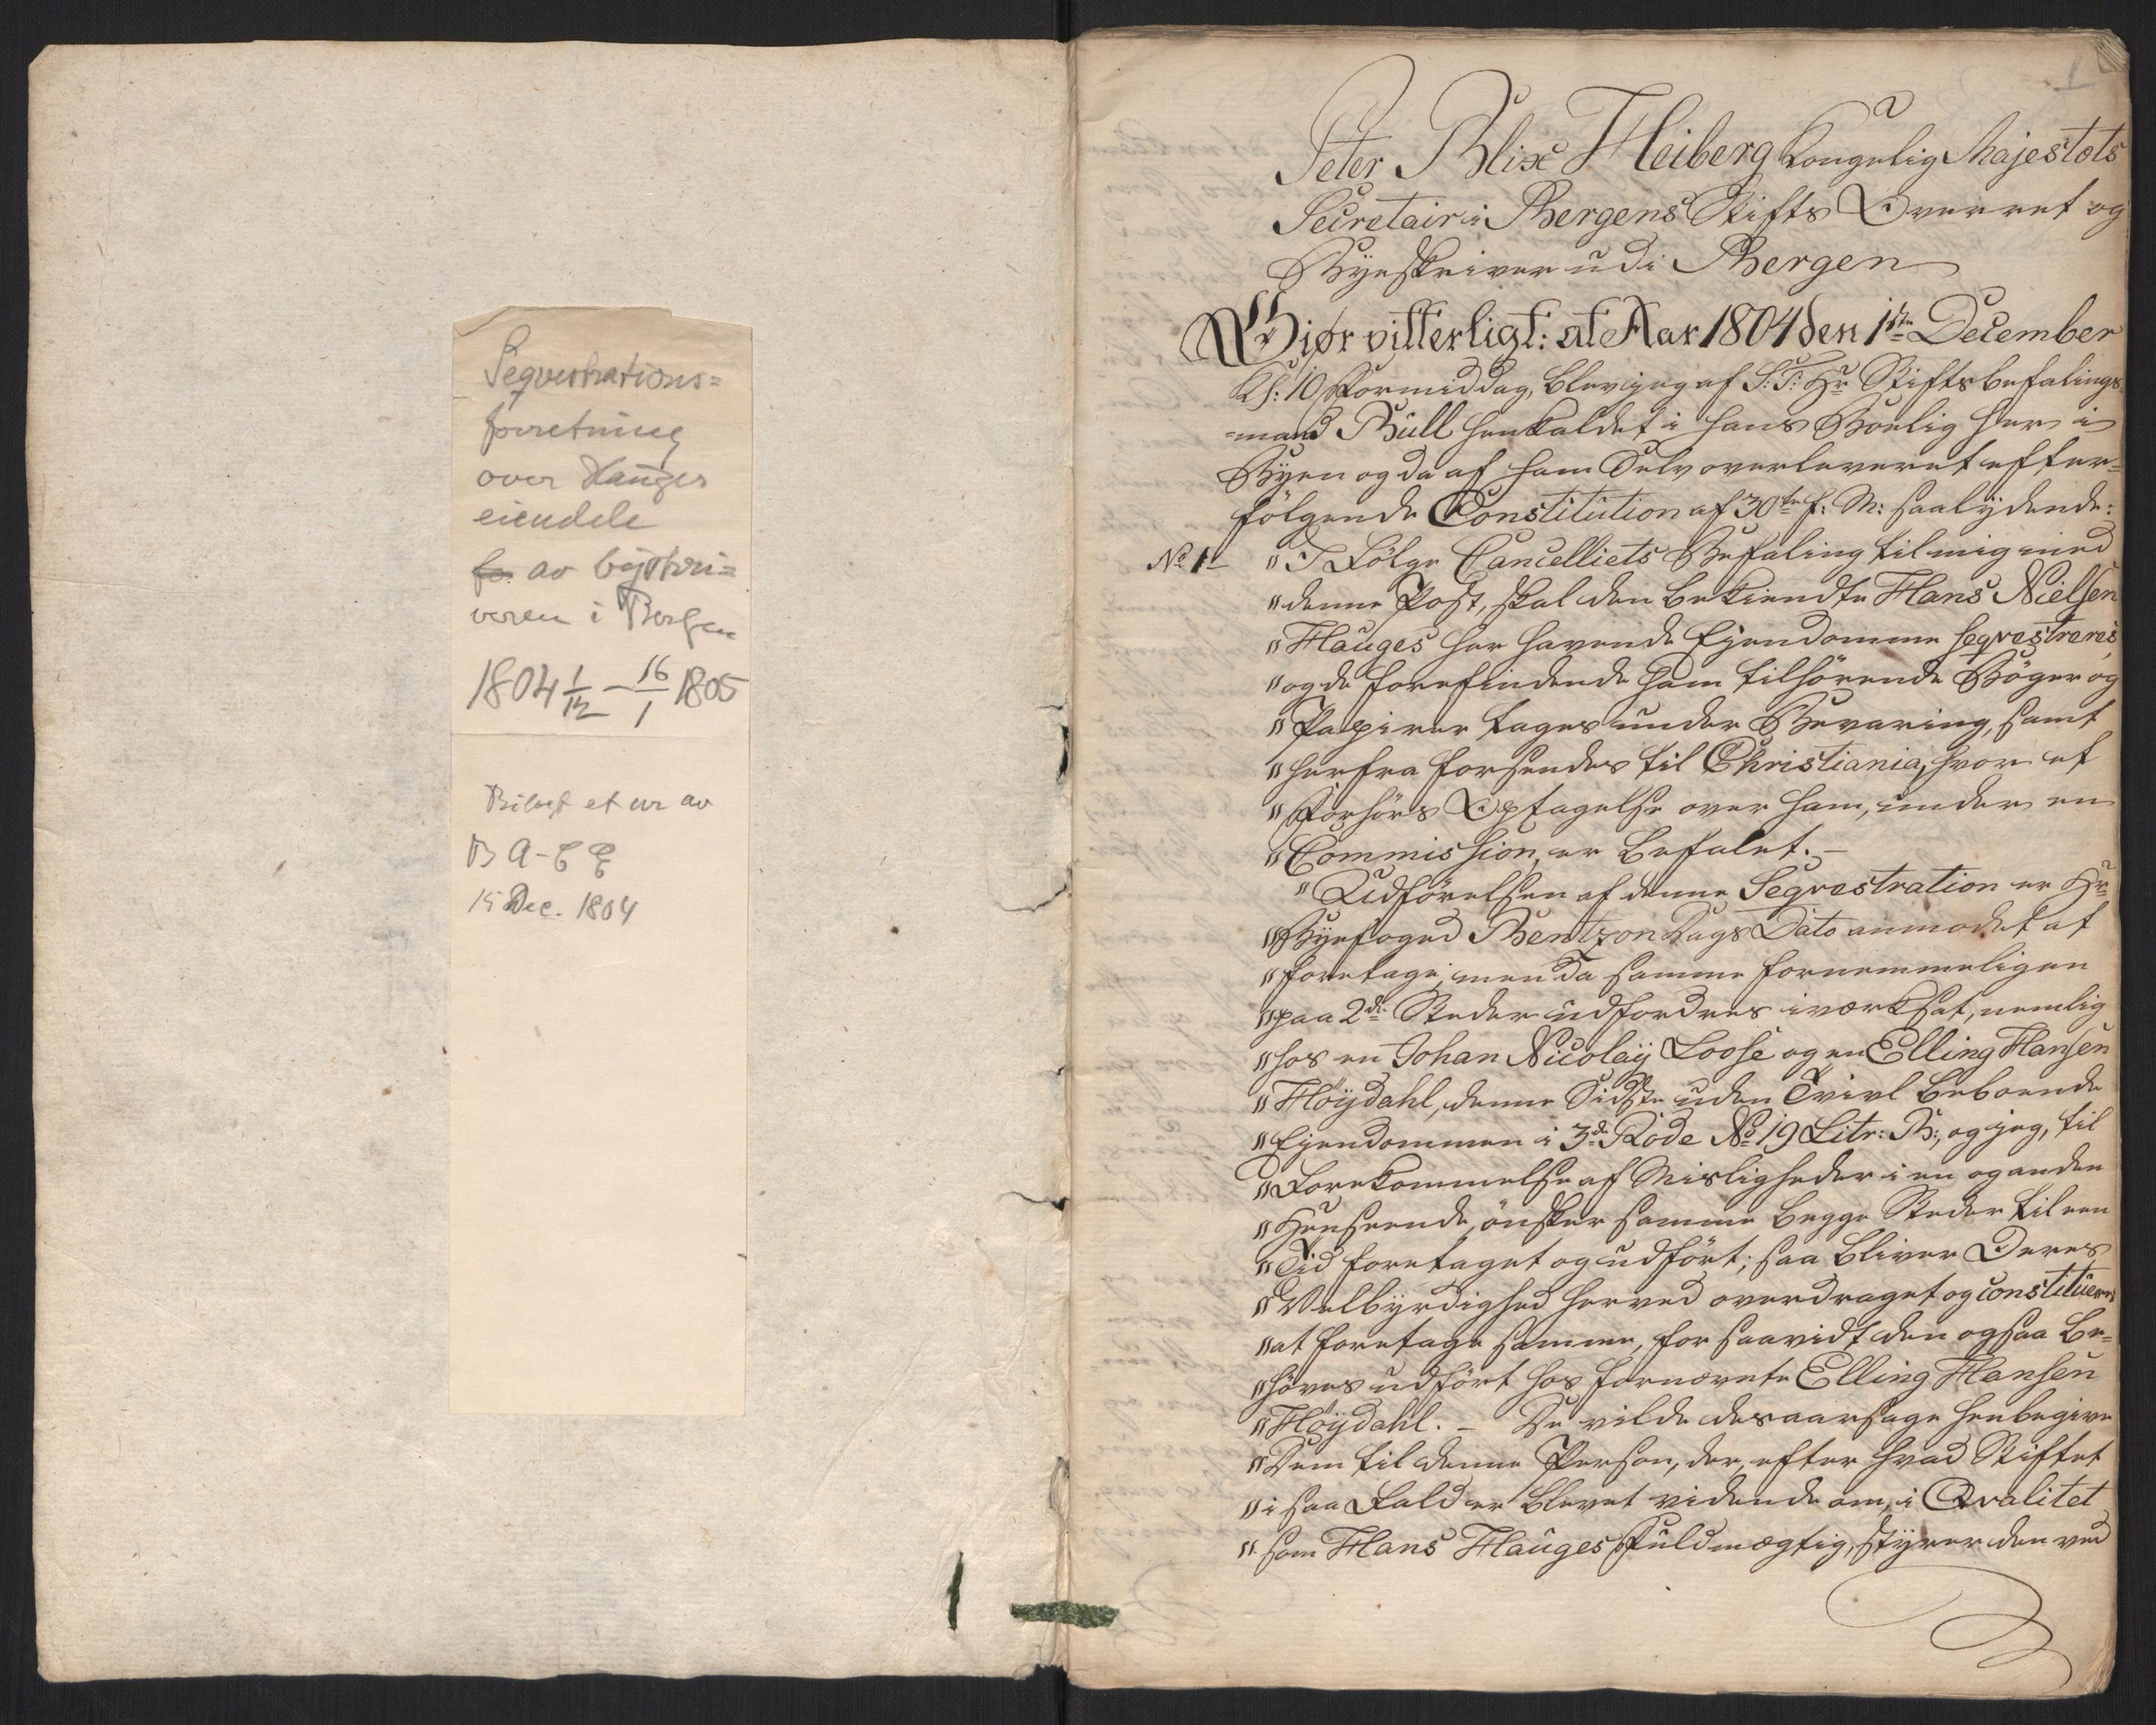 Seqvestrations=
forretning
over Hauges
eiendele
fo. av byskri=
veren i Bergen
1804 1/12 – 16/1 1805
Bilagt et ur av
B A-
15 Dec. 1804
1
Peter Blix Heiberg Kongelig Majestæts
Secretair i Bergens Stifts Overret og
Byeskriver udi Bergen
Giør vitterligt: at Aar 1804 den 1ste December
Kl: 10 Formiddag, blev jeg af S: T: Hr Stiftsbefalings
=mand Bull henkaldet i hans Boelig her i
Byen og da af ham Selv overleveret efter=
følgende Constitution af 30te f: M: saalydende:
No 1 "I Følge Cancelliets Befaling til mig med
"denne Post, skal den bekiendte Hans Nielsen
"Hauges her havende Ejendomme seqvestreres
"og de forefindende ham tilhörende Böger og
"Papirer tages under Bevaring, samt
"herfra forsendes til Christiania, hvor et
"Forhörs Optagelse over ham, under en
"Commission, er befalet. –
"Udförelsen af denne Seqvestration er Hr
"Byefoged Bentzon Dags Dato anmodet at
"foretage; men da samme fornemmeligen
"paa 2de Steder udfordres iværksat, nemlig
"hos en Johan Nicolaÿ Loose og en Elling Hansen
"Höÿdahl, denne Sidste uden Tvivl beboende
"Ejendommen i 3die Rode No 19 Litr: B:, og jeg, til
"Forekommelse af Misligheder i en og anden
"Henseende, önsker samme begge Steder til een
"Tid foretaget og udfört; saa bliver Deres
"Velbyrdighed herved overdraget og constitueres
"at foretage samme, for saavidt den ogsaa be=
"höves udfört hos fornævnte Elling Hansen
"Höÿdahl. – De vilde desaarsage henbegive
"Dem til denne Person, der, efter hvad Stiftet
"i saa Fald er blevet vidende om, i Qvalitet
"som Hans Hauges Fuldmægtig, styrer den ved